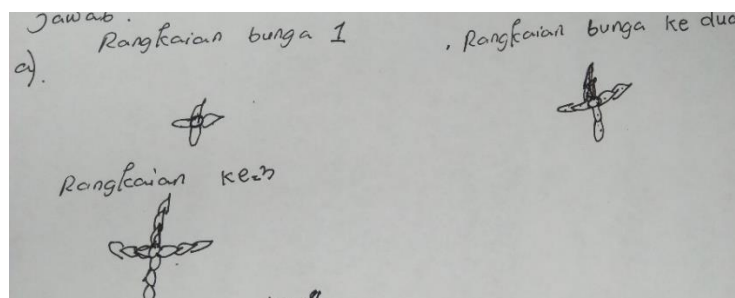 Jawab.
Rangkaian bunga 1
. Rangkaian bunga ke dua
a).
Rangkaian ke-3